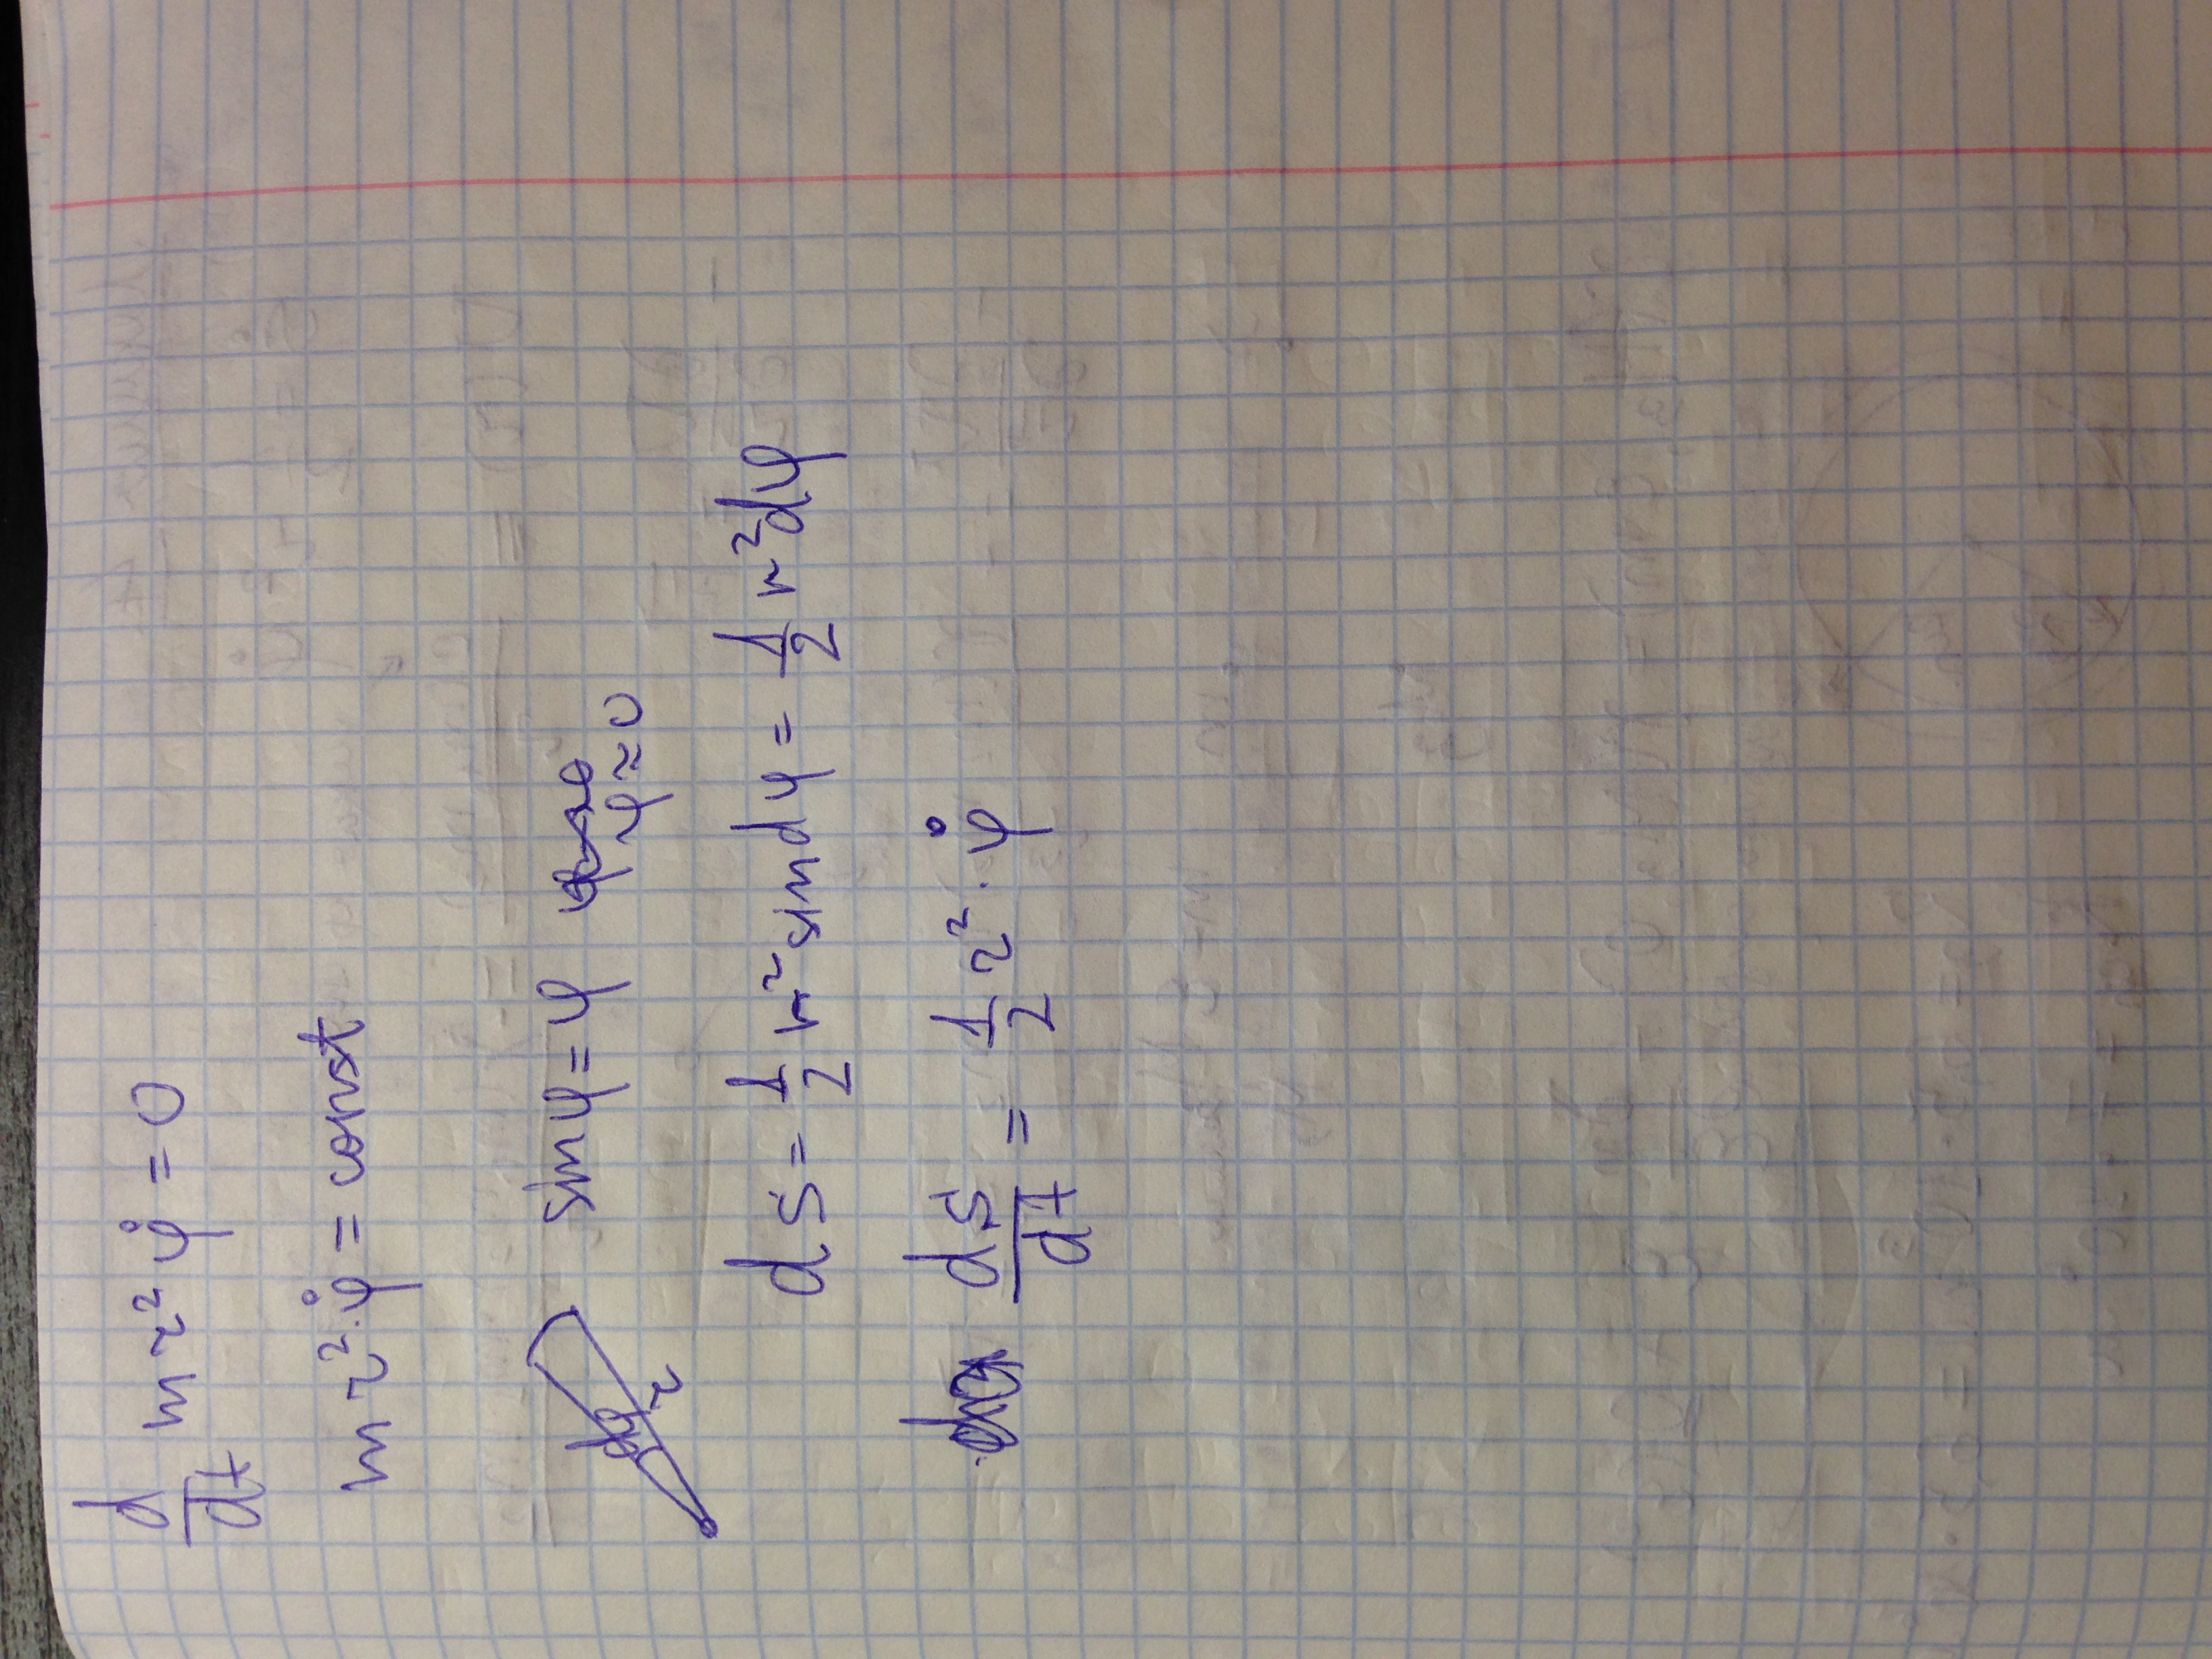 d/dt m r² φ̇ = 0
m r² · φ̇ = const
dφ r
sin φ = φ φ ≈ 0
dS = 1/2 r² sin dφ = 1/2 r² dφ
dS/dt = 1/2 r² · φ̇